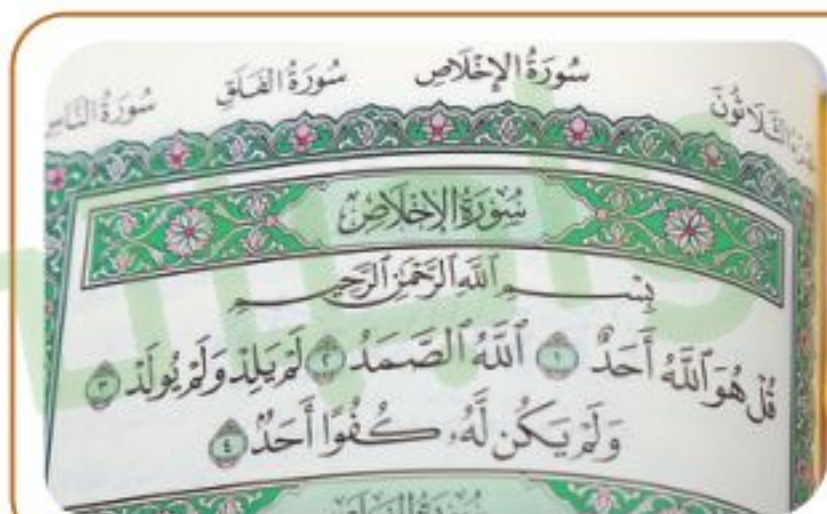 الجزء الثلاثون سورة الإخلاص سورة الفلق سورة الناس
سُورَةُ الإِخْلَاصِ
بِسْمِ ٱللَّهِ ٱلرَّحْمَٰنِ ٱلرَّحِيمِ
قُلْ هُوَ ٱللَّهُ أَحَدٌ ١ ٱللَّهُ ٱلصَّمَدُ ٢ لَمْ يَلِدْ وَلَمْ يُولَدْ ٣
وَلَمْ يَكُن لَّهُۥ كُفُوًا أَحَدٌۢ ٤